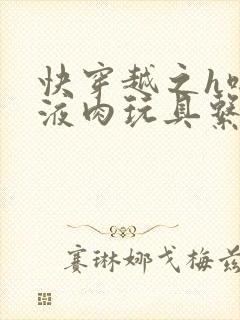 快穿越之h
液肉玩具系
赛琳娜戈梅兹